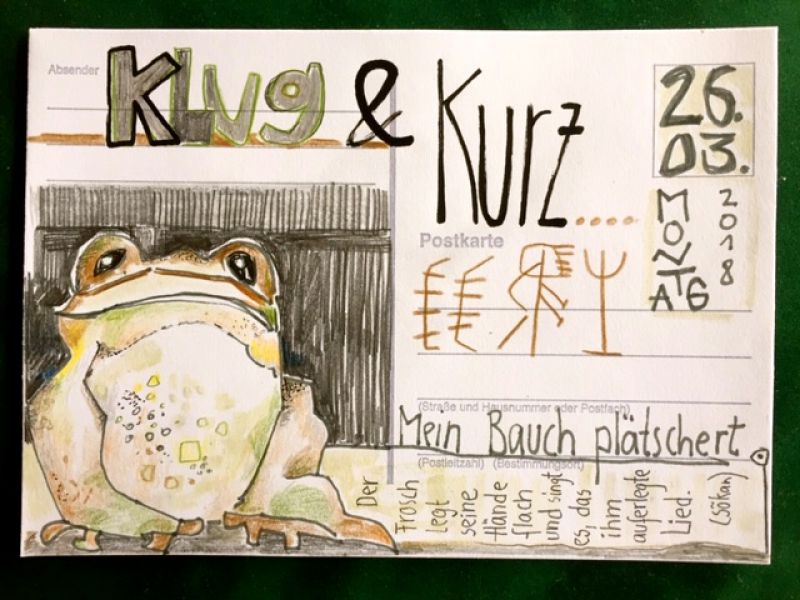 Absender
Klug & Kurz.....
26.
03.
MONTAG
2018
Postkarte
(Straße und Hausnummer oder Postfach)
Mein Bauch plätschert.
(Postleitzahl) (Bestimmungsort)
Der
Frosch
legt
seine
Hände
flach
und singt
es, das
ihm
auferlegte
Lied.
(sōkan)